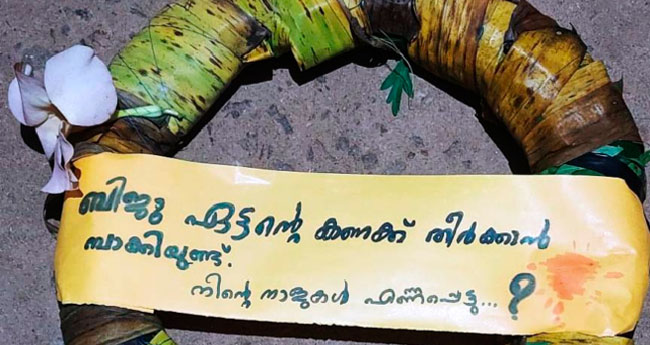 ബിജു ഏട്ടൻ്റെ കണക്ക് തീർക്കാൻ
ബാക്കിയുണ്ട്.
നിൻ്റെ നാളുകൾ എണ്ണപ്പെട്ടു...?